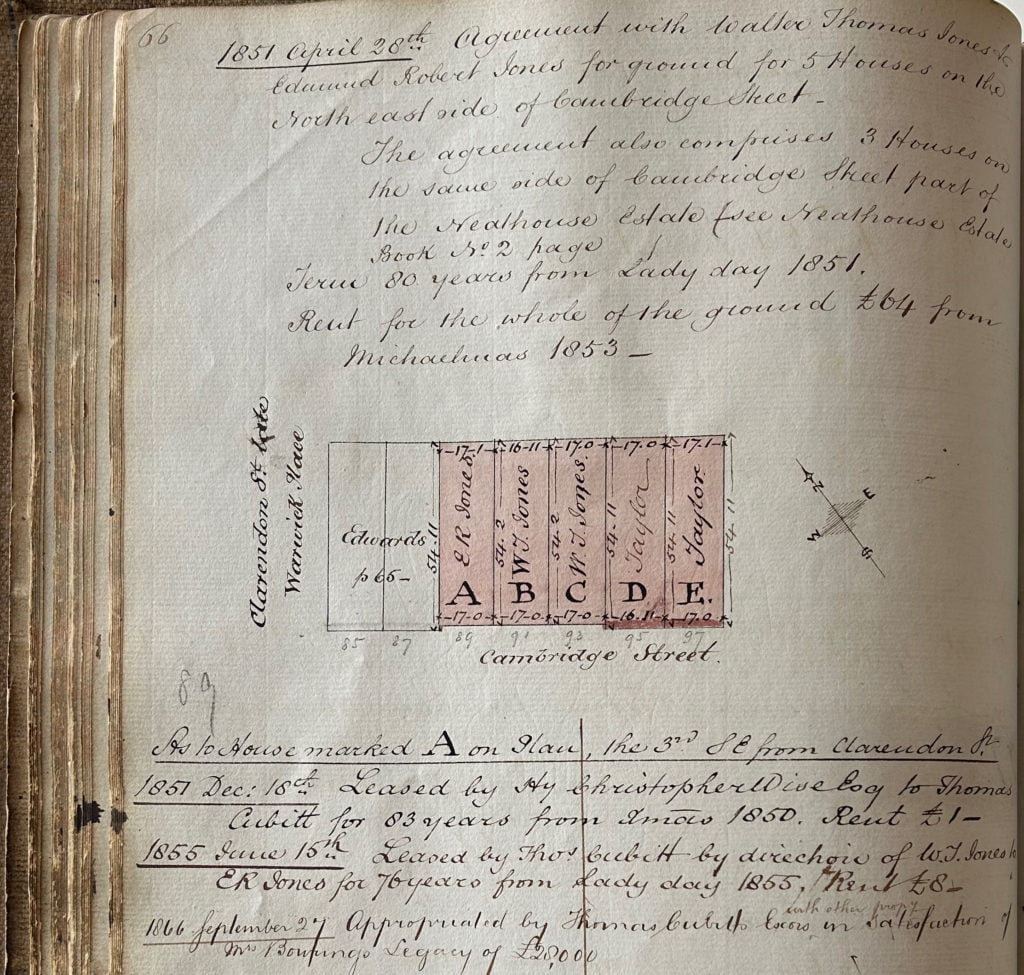 66
1851 April 28th Agreement with Walter Thomas Jones &
Edmund Robert Jones for ground for 5 Houses on the
North east side of Cambridge Street -
The agreement also comprises 3 Houses on
the same side of Cambridge Street part of
the Neathouse Estate (see Neathouse Estate
Book No. 2 page
Term 80 years from Lady day 1851.
Rent for the whole of the ground £64 from
Michaelmas 1853 -
Clarendon St late
Warwick Place
Edwards
p 65 -
54-11
-17-1- -16-11- -17.0- -17.0- -17.1-
ER Jones
54-2
W.T. Jones
54-2
W.T. Jones.
54-11
Taylor
54-11
Taylor.
54-11
A B C D E.
-17-0- -17-0- -17-0- -16.11- -17.0-
85 87 89 91 93 95 97
Cambridge Street.
N E W S
89
As to House marked A on Plan, the 3rd S E from Clarendon St.
1851 Dec: 18th Leased by Hy Christopher Wise Esq to Thomas
Cubitt for 83 years from Xmas 1850. Rent £1 -
1855 June 15th Leased by Thos Cubitt by direction of W.T. Jones to
ER Jones for 76 years from Lady day 1855. Rent £8 -
with other propy
1866 September 27 Appropriated by Thomas Cubitts Excors in Satisfaction of
Mrs Legacy of £28,000